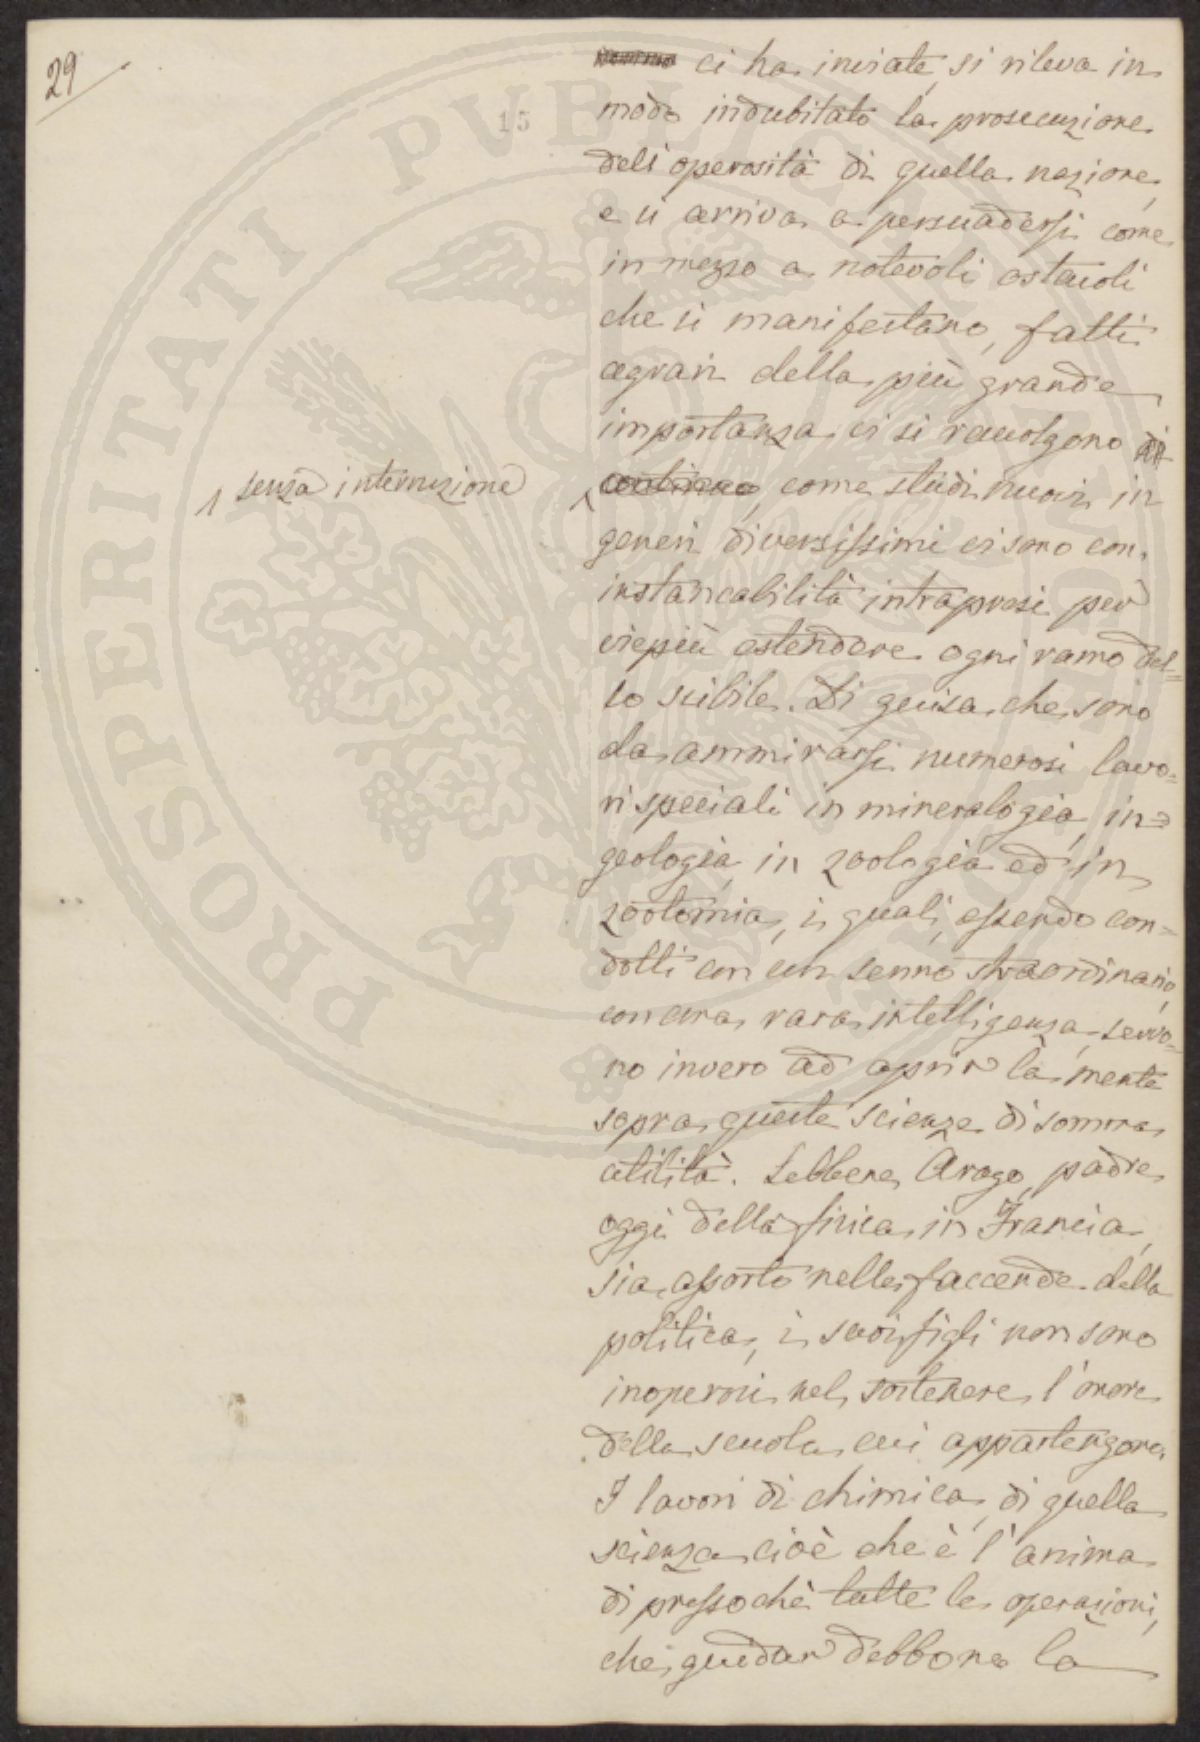 29
15
PROSPERITATI PUBLICAE AUGENDAE
ci ha inviate, si rileva in
modo indubitato la prosecuzione
dell'operosità di quella nazione,
e si arriva a persuadersi come
in mezzo a notevoli ostacoli
che si manifestano, fatti
agrari della più grande
importanza ci si raccolgono di
senza interruzione
continuo, come studi nuovi in
generi diversissimi ci sono con
instancabilità intrapresi per
viepiù estendere ogni ramo del=
lo scibile. Di guisa che sono
da ammirarsi numerosi lavo=
ri speciali in mineralogia, in=
geologia, in zoologia ed in
zootomia, i quali, essendo con=
dotti con un senno straordinario,
con una rara intelligenza, servo=
no invero ad aprir la mente
sopra queste scienze di somma
utilità. Sebbene Arago, padre
oggi della fisica in Francia,
sia assorto nelle faccende della
politica, i suoi figli non sono
inoperosi nel sostenere l'onore
della scuola cui appartengono.
I lavori di chimica, di quella
scienza cioè che è l'anima
di pressochè tutte le operazioni,
che guidar debbono la